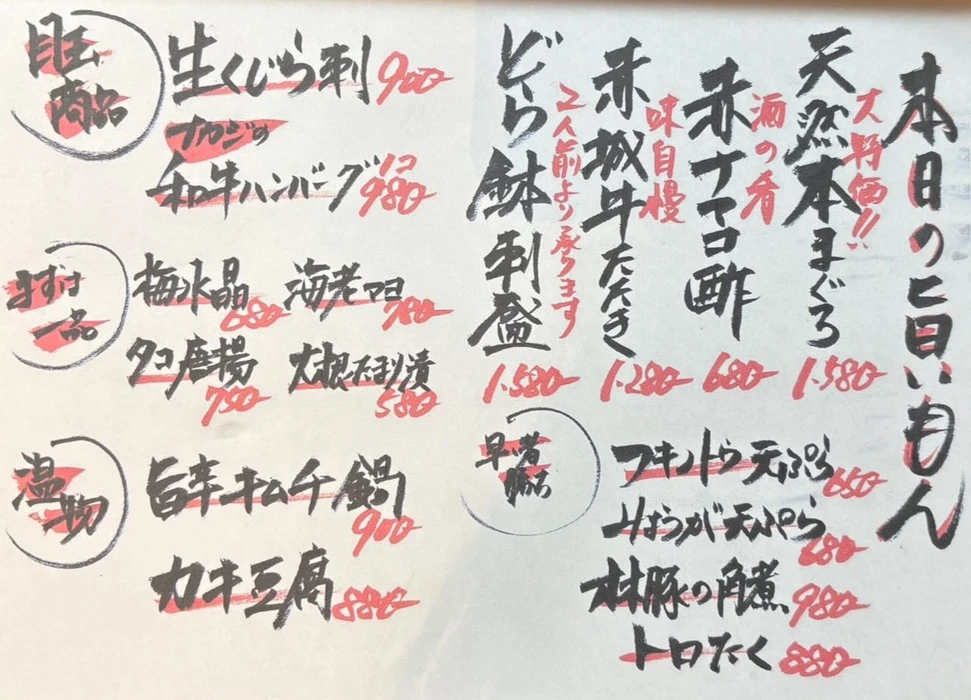 本日の旨いもん
天然本まぐろ
大特価!!
1.580
赤ナマコ酢
酒の肴
680
赤城牛たたき
味自慢
1.280
どら鉢刺盛
2人前より承ります
1.580
目玉
商品
生くじら刺 900
ナカジの
和牛ハンバーグ 1コ 980
まずは
一品
梅水晶 680
海老マヨ 780
タコ唐揚 750
大根たまり漬 580
温物
旨辛キムチ鍋 900
カキ豆腐 880
早い者
勝ち
フキノトウ天ぷら 650
みょうが天ぷら 680
豚の角煮 980
トロたく 880